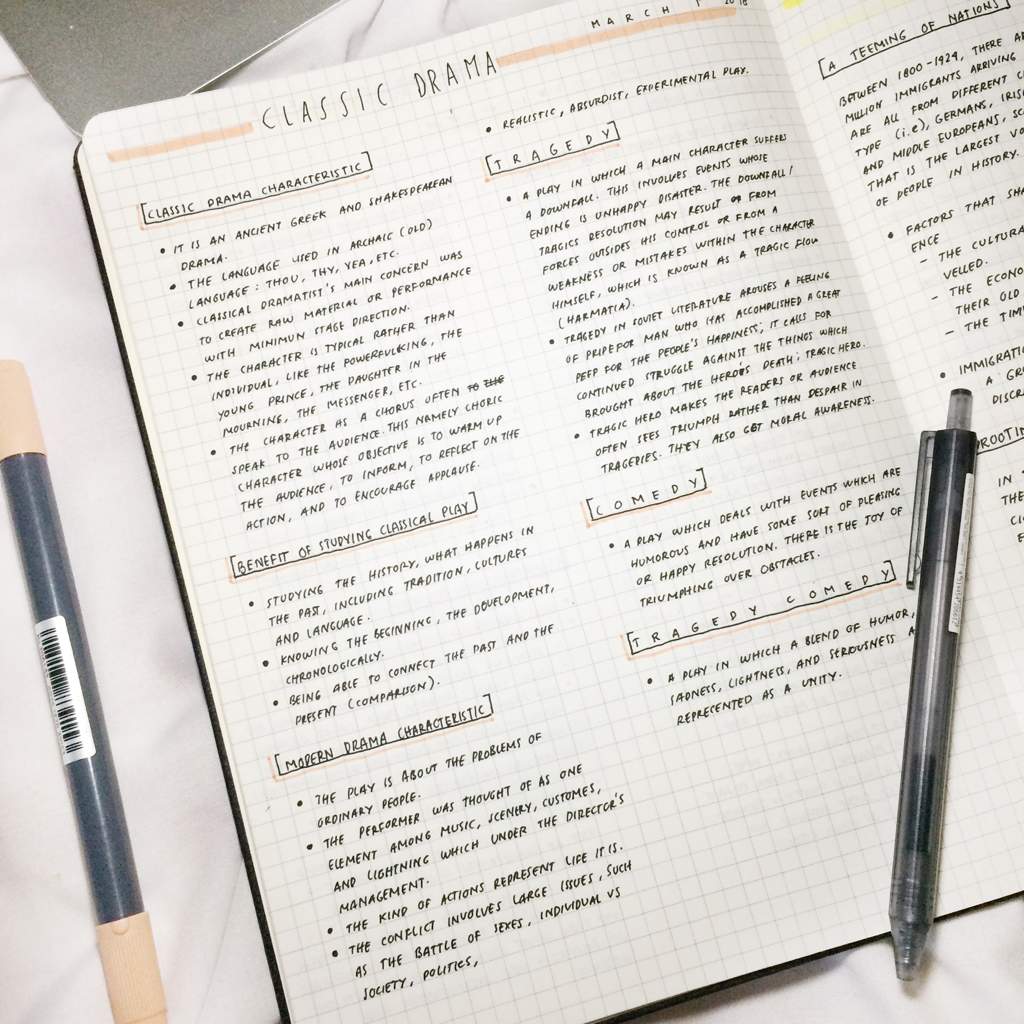 MARCH 1 2018
CLASSIC DRAMA
[CLASSIC DRAMA CHARACTERISTIC]
• IT IS AN ANCIENT GREEK AND SHAKESPEAREAN
DRAMA.
• THE LANGUAGE USED IN ARCHAIC (OLD)
LANGUAGE: THOU, THY, YEA, ETC.
• CLASSICAL DRAMATIST'S MAIN CONCERN WAS
TO CREATE RAW MATERIAL OR PERFORMANCE
WITH MINIMUN STAGE DIRECTION.
• THE CHARACTER IS TYPICAL RATHER THAN
INDIVIDUAL, LIKE THE POWERFUL KING, THE
YOUNG PRINCE, THE DAUGHTER IN THE
MOURNING, THE MESSENGER, ETC.
• THE CHARACTER AS A CHORUS OFTEN TO THE
SPEAK TO THE AUDIENCE. THIS NAMELY CHORIC
CHARACTER WHOSE OBJECTIVE IS TO WARM UP
THE AUDIENCE, TO INFORM, TO REFLECT ON THE
ACTION, AND TO ENCOURAGE APPLAUSE.
[BENEFIT OF STUDYING CLASSICAL PLAY]
• STUDYING THE HISTORY, WHAT HAPPENS IN
THE PAST, INCLUDING TRADITION, CULTURES
AND LANGUAGE.
• KNOWING THE BEGINNING, THE DEVELOPMENT,
CHRONOLOGICALLY.
• BEING ABLE TO CONNECT THE PAST AND THE
PRESENT (COMPARISON).
[MODERN DRAMA CHARACTERISTIC]
• THE PLAY IS ABOUT THE PROBLEMS OF
ORDINARY PEOPLE.
• THE PERFORMER WAS THOUGHT OF AS ONE
ELEMENT AMONG MUSIC, SCENERY, CUSTOMES,
AND LIGHTNING WHICH UNDER THE DIRECTOR'S
MANAGEMENT.
• THE KIND OF ACTIONS REPRESENT LIFE IT IS.
• THE CONFLICT INVOLVES LARGE ISSUES, SUCH
AS THE BATTLE OF SEXES, INDIVIDUAL VS
SOCIETY, POLITICS,
• REALISTIC, ABSURDIST, EXPERIMENTAL PLAY.
[TRAGEDY]
• A PLAY IN WHICH A MAIN CHARACTER SUFFERS
A DOWNFALL. THIS INVOLVES EVENTS WHOSE
ENDING IS UNHAPPY DISASTER. THE DOWNFALL/
TRAGICS RESOLUTION MAY RESULT FROM
FORCES OUTSIDES HIS CONTROL OR FROM A
WEAKNESS OR MISTAKES WITHIN THE CHARACTER
HIMSELF, WHICH IS KNOWN AS A TRAGIC FLOW
(HARMATIA).
• TRAGEDY IN SOVIET LITERATURE AROUSES A FEELING
OF PRIDE FOR MAN WHO HAS ACCOMPLISHED A GREAT
DEED FOR THE PEOPLE'S HAPPINESS; IT CALLS FOR
CONTINUED STRUGGLE AGAINST THE THINGS WHICH
BROUGHT ABOUT THE HERO'S DEATH; TRAGIC HERO.
• TRAGIC HERO MAKES THE READERS OR AUDIENCE
OFTEN SEES TRIUMPH RATHER THAN DESPAIR IN
TRAGEDIES. THEY ALSO GET MORAL AWARENESS.
[COMEDY]
• A PLAY WHICH DEALS WITH EVENTS WHICH ARE
HUMOROUS AND HAVE SOME SORT OF PLEASING
OR HAPPY RESOLUTION. THERE IS THE JOY OF
TRIUMPHING OVER OBSTACLES.
[TRAGEDY COMEDY]
• A PLAY IN WHICH A BLEND OF HUMOR,
SADNESS, LIGHTNESS, AND SERIOUSNESS A
REPRECENTED AS A UNITY.
[A TEEMING OF NATIONS]
BETWEEN 1800-1924, THERE AR
MILLION IMMIGRANTS ARRIVING
ARE ALL FROM DIFFERENT C
TYPE (i.e), GERMANS, IRIS
AND MIDDLE EUROPEANS, SC
THAT IS THE LARGEST VO
OF PEOPLE IN HISTORY.
• FACTORS THAT SHA
ENCE
- THE CULTURA
VELLED.
- THE ECONO
THEIR OLD
- THE TIM
• IMMIGRATIO
A GR
DISCR
ROOTIN
IN
THE